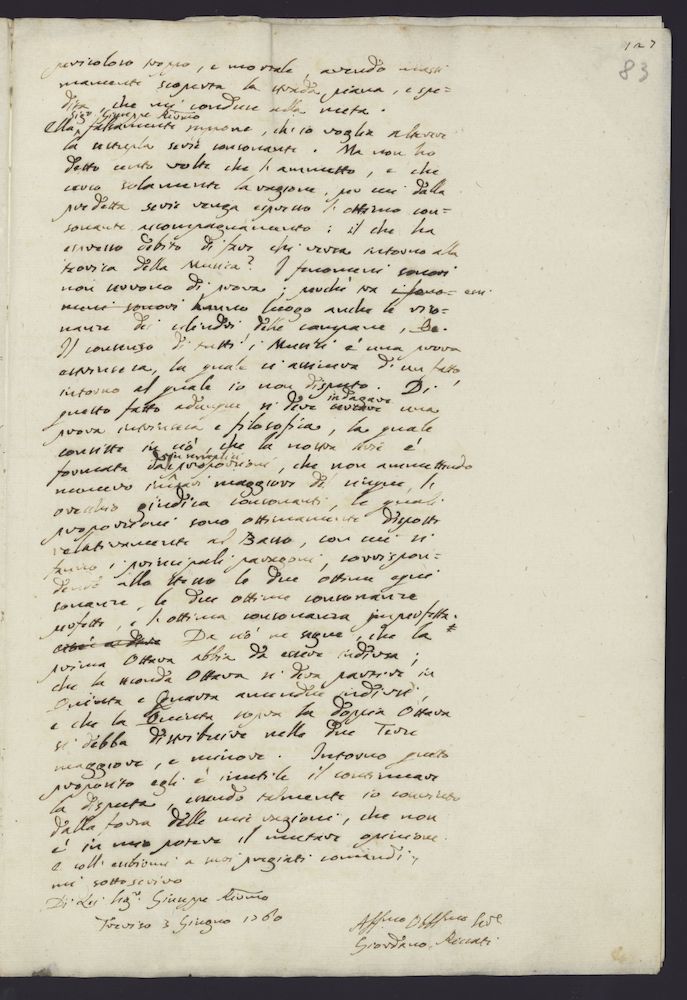 127
83
pericoloso troppo, e mortale, avendo massi
mamente scoperta la strada piana, e spe=
dita, che mi conduce alla meta.
Sigr. Giuseppe Stimo
Ella falsamente suppone, ch'io voglia alterare
la semplice serie consonante. Ma non ho
detto cento volte che l'ammetto, e che
cerco solamente la ragione, per cui dalla
predetta serie venga espresso l'ottimo con=
sonante accompagnamento: il che ha
espresso debito di far chi versa intorno alla
teorica della Musica? I fenomeni sonori
non servono di prova; perchè tra i feno= essi
meni sonori hanno luogo anche le riso=
nanze dei cilindri delle campane, &c.
Il consenso di tutti i Musici è una prova
estrinseca, la quale ci assicura di un fatto
intorno al quale io non disputo. Di
questo fatto adunque si deve indagare una
prova intrinseca e filosofica, la quale
consiste in ciò, che la nostra serie è
formata dalle proporzioni, che non ammettendo
numero maggiore di cinque, l'
orecchio giudica consonanti, le quali
proporzioni sono ottimamente disposte
relativamente al Basso, con cui si
fanno i principali paragoni, corrispon=
dendo allo stesso le due ottime equi
sonanze, le due ottime consonanze
perfette, e l'ottima consonanza imperfetta.
Da ciò ne segue, che la
prima Ottava abbia da essere indivisa;
che la seconda Ottava si deva partire in
Quinta e Quarta amendue indivise,
e che la Quinta sopra la doppia Ottava
si debba distribuire nelle due Terze
maggiore, e minore. Intorno questo
proposito egli è inutile il continuare
la disputa, essendo talmente io convinto
dalla forza delle mie ragioni, che non
è in mio potere il mutare opinione.
E coll'esibirmi a suoi pregiati comandi,
mi sottoscrivo
Di Lei Sigr. Giuseppe Stimo
Treviso 3 Giugno 1760
Affmo Obblmo Serve
Giordano Riccati